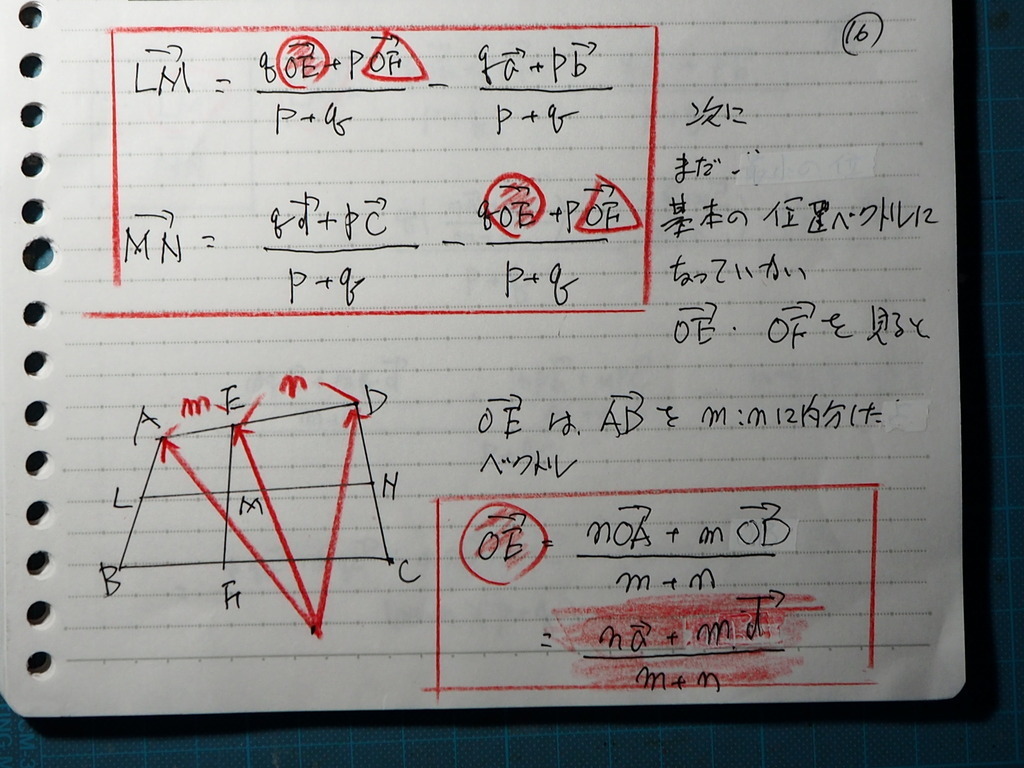 16
LM→ = (qOE→ + pOF→)/(p+q) − (qa→ + pb→)/(p+q)
MN→ = (qd→ + pc→)/(p+q) − (qOE→ + pOF→)/(p+q)
次に
まだ
基本の位置ベクトルに
なっていない
OE→・OF→を見ると
m n
A E D
L M N
B F C
OE→は、AB→をm:nに内分した
ベクトル
OE→ = (nOA→ + mOD→)/(m+n)
= (na→ + md→)/(m+n)